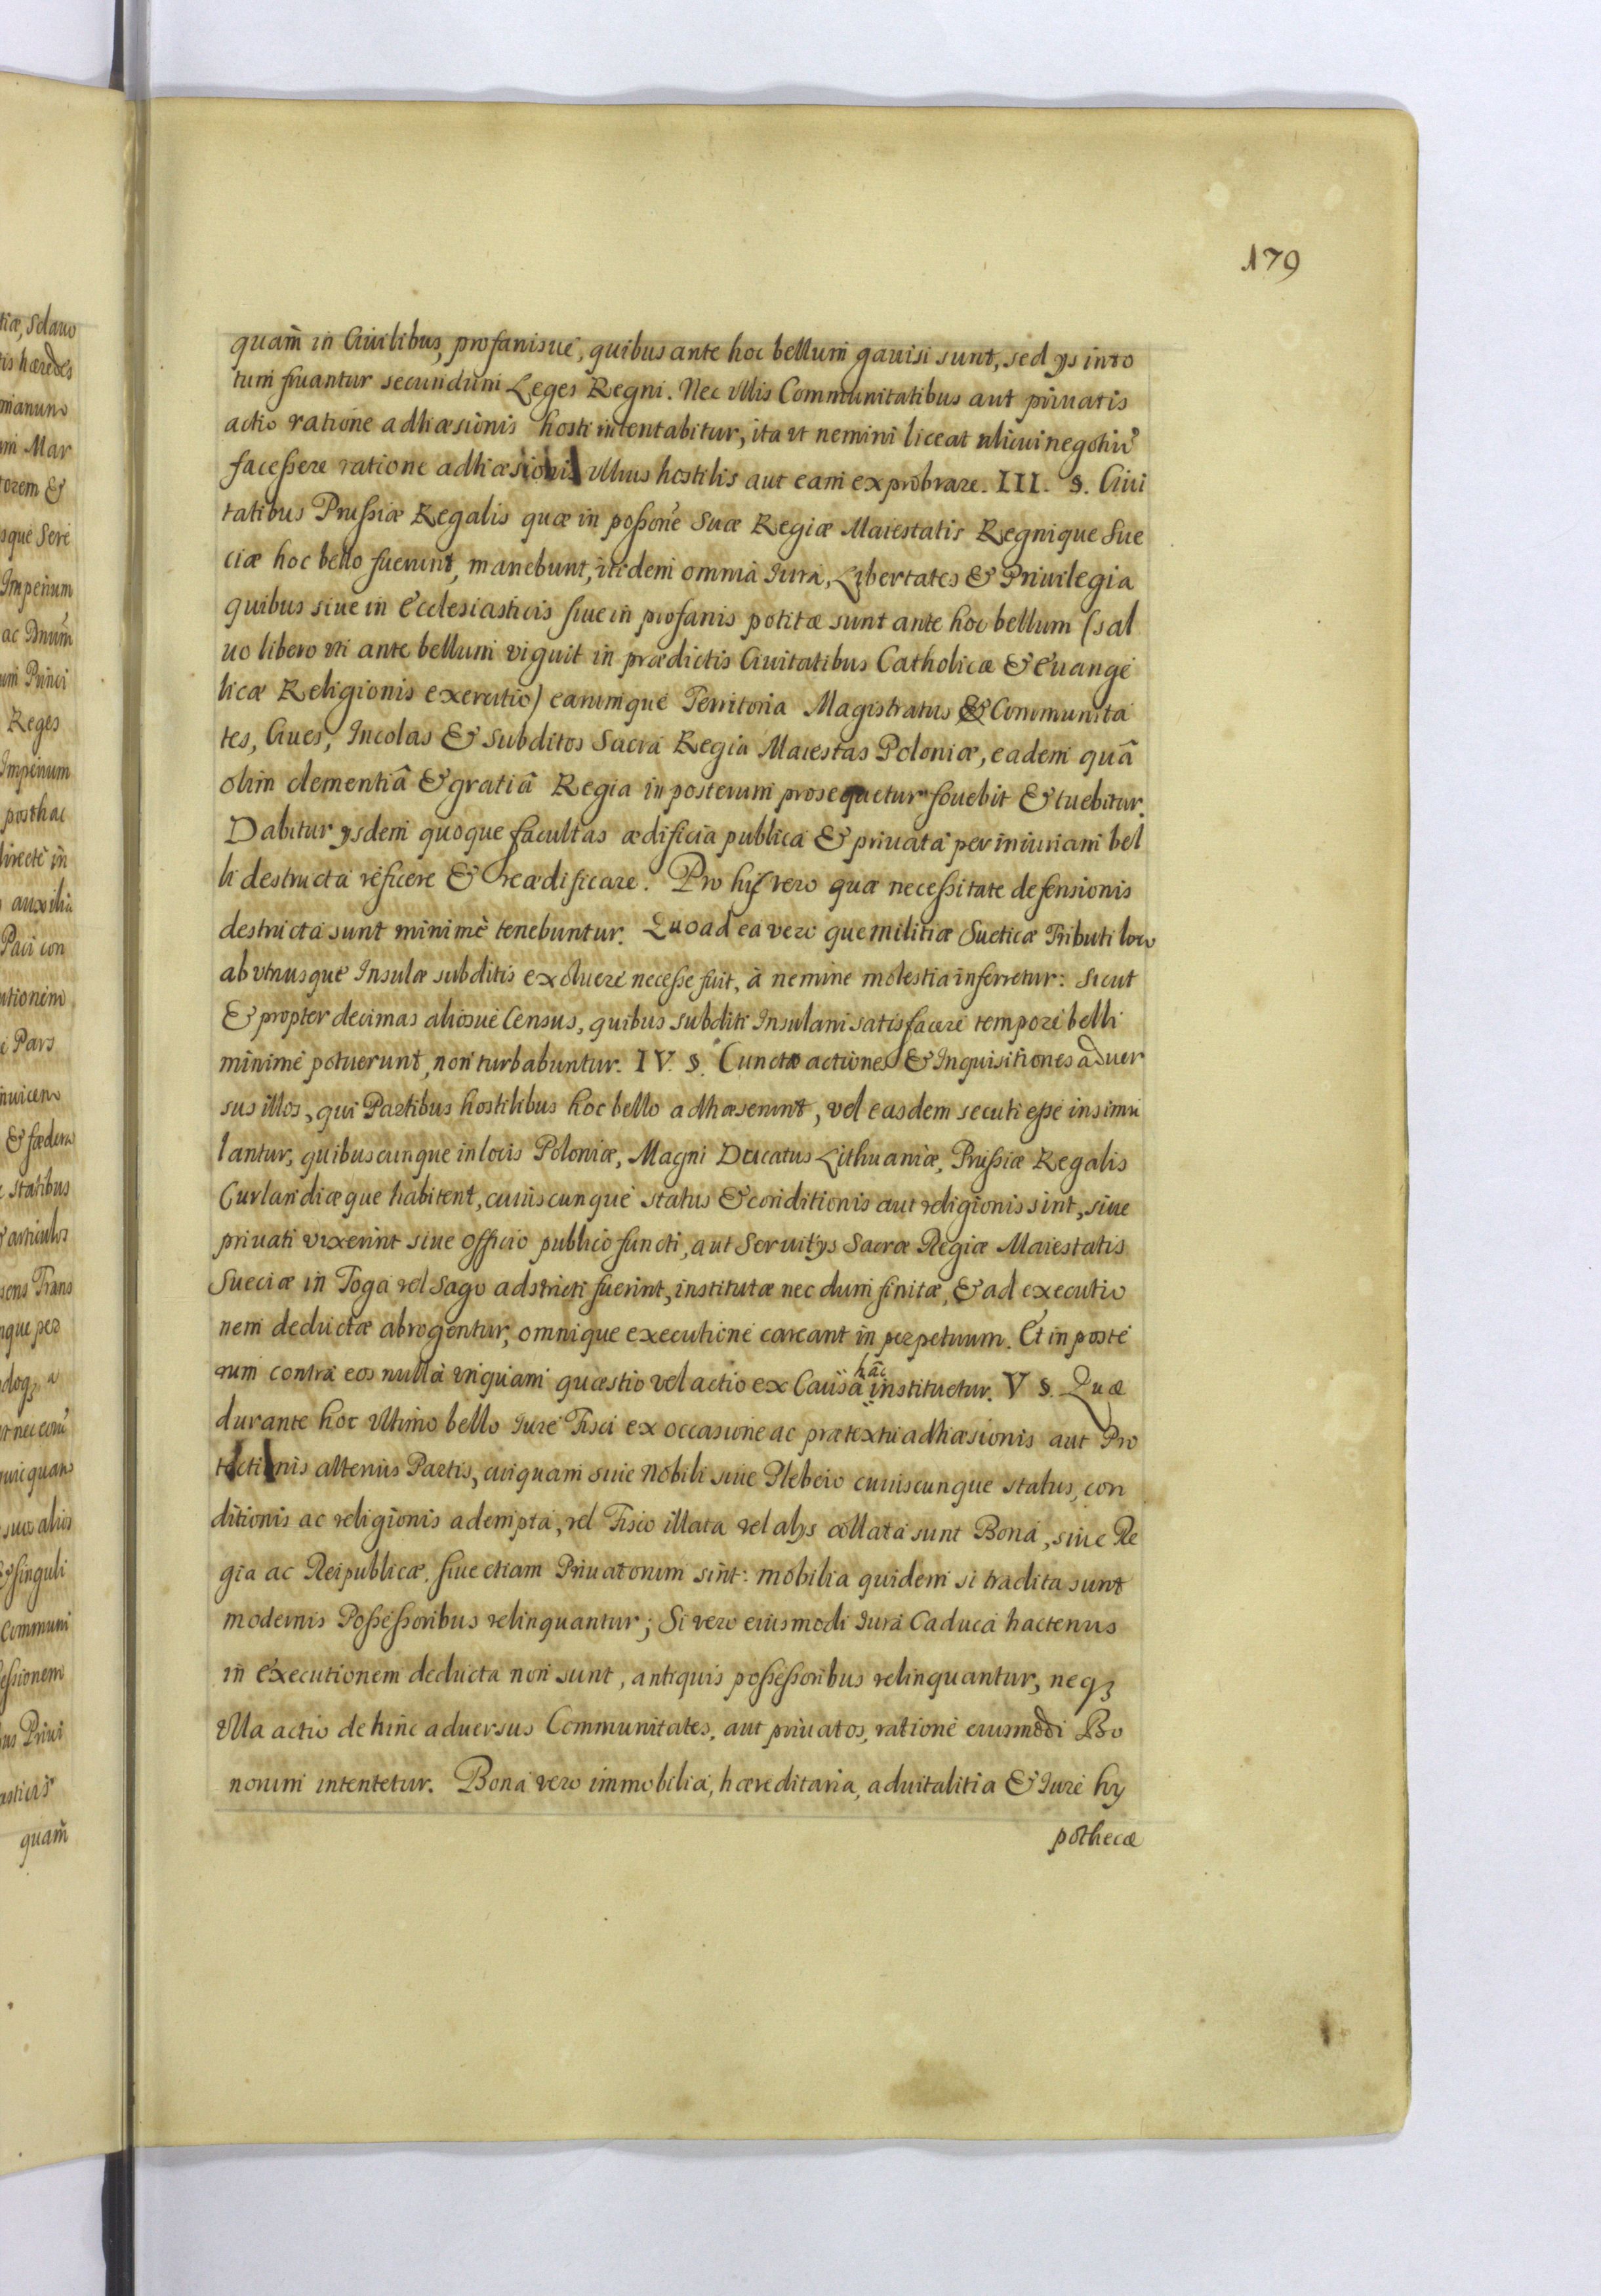 179
quam̃ in Ciuilibus, profanisue, quibus ante hoc bellum gauisi sunt, sed ijs in to
tum fruantur secundum Leges Regni. Nec vllis Communitatibus aut priuatis
actio ratione adhæsionis hosti intentabitur, ita vt nemini liceat alicui negotiũ
facessere ratione adhæsionis vllius hostilis aut eam exprobrare. III. §. Ciui
tatibus Prussiæ Regalis quæ in possone Suæ Regiæ Maiestatis Regnique Sue
ciæ hoc bello fuerunt, manebunt, itidem omnia Iura, Libertates & Priuilegia
quibus siue in Ecclesiasticis siue in profanis potitæ sunt ante hoc bellum (sal
uo libero vti ante bellum viguit in prædictis Ciuitatibus Catholicæ & Euange
licæ Religionis exercitio) earumque Territoria Magistratus & Communita
tes, Ciues, Incolas & Subditos Sacra Regia Maiestas Poloniæ, eadem quâ
olim clementiâ & gratiâ Regia in posterum prosequetur fouebit & tuebitur.
Dabitur ijsdem quoque facultas ædificia publica & priuata per iniuriam bel
li destructa reficere & reædificare. Pro his vero quæ necessitate defensionis
destructa sunt minimè tenebuntur. Quoad ea vero que militiæ Sueticæ Tributi loco
ab vtriusque Insulæ subditis exoluere necesse fuit, à nemine molestia inferretur: sicut
& propter decimas aliosue Census, quibus subditi Insulani satisfacere tempore belli
minime potuerunt, non turbabuntur. IV. §. Cunctæ actiones & Inquisitiones aduer
sus illos, qui Partibus hostilibus hoc bello adhæserunt, vel easdem secuti esse insimu
lantur, quibuscunque in locis Poloniæ, Magni Ducatus Lithuaniæ, Prussiæ Regalis
Curlandiæque habitent, cuiuscunque status & conditionis aut religionis sint, siue
priuati vixerint siue officio publico functi, aut Seruitijs Sacræ Regiæ Maiestatis
Sueciæ in Toga vel Sago adstricti fuerint, institutæ nec dum finitæ, & ad executio
nem deductæ abrogentur, omnique executione careant in perpetuum. Et in poste
rum contra eos nulla vnquam quæstio vel actio ex Causa hâc instituetur. V §. Quæ
durante hoc vltimo bello Iure Fisci ex occasione ac prætextu adhæsionis aut Pro
tectionis alterius Partis, cuiquam siue Nobili siue Plebeio cuiuscunque status, con
ditionis ac religionis adempta, vel Fisco illata vel alijs collata sunt Bona, siue Re
gia ac Reipublicæ, siue etiam Priuatorum sint: mobilia quidem si tradita sunt
modernis Possessoribus relinquantur; Si vero eiusmodi Iura Caduca hactenus
in executionem deducta non sunt, antiquis possessoribus relinquantur, neqꝫ
vlla actio dehinc aduersus Communitates, aut priuatos, ratione eiusmodi Bo
norum intentetur. Bona vero immobilia, hæreditaria, aduitalitia & Iure hy
pothecæ